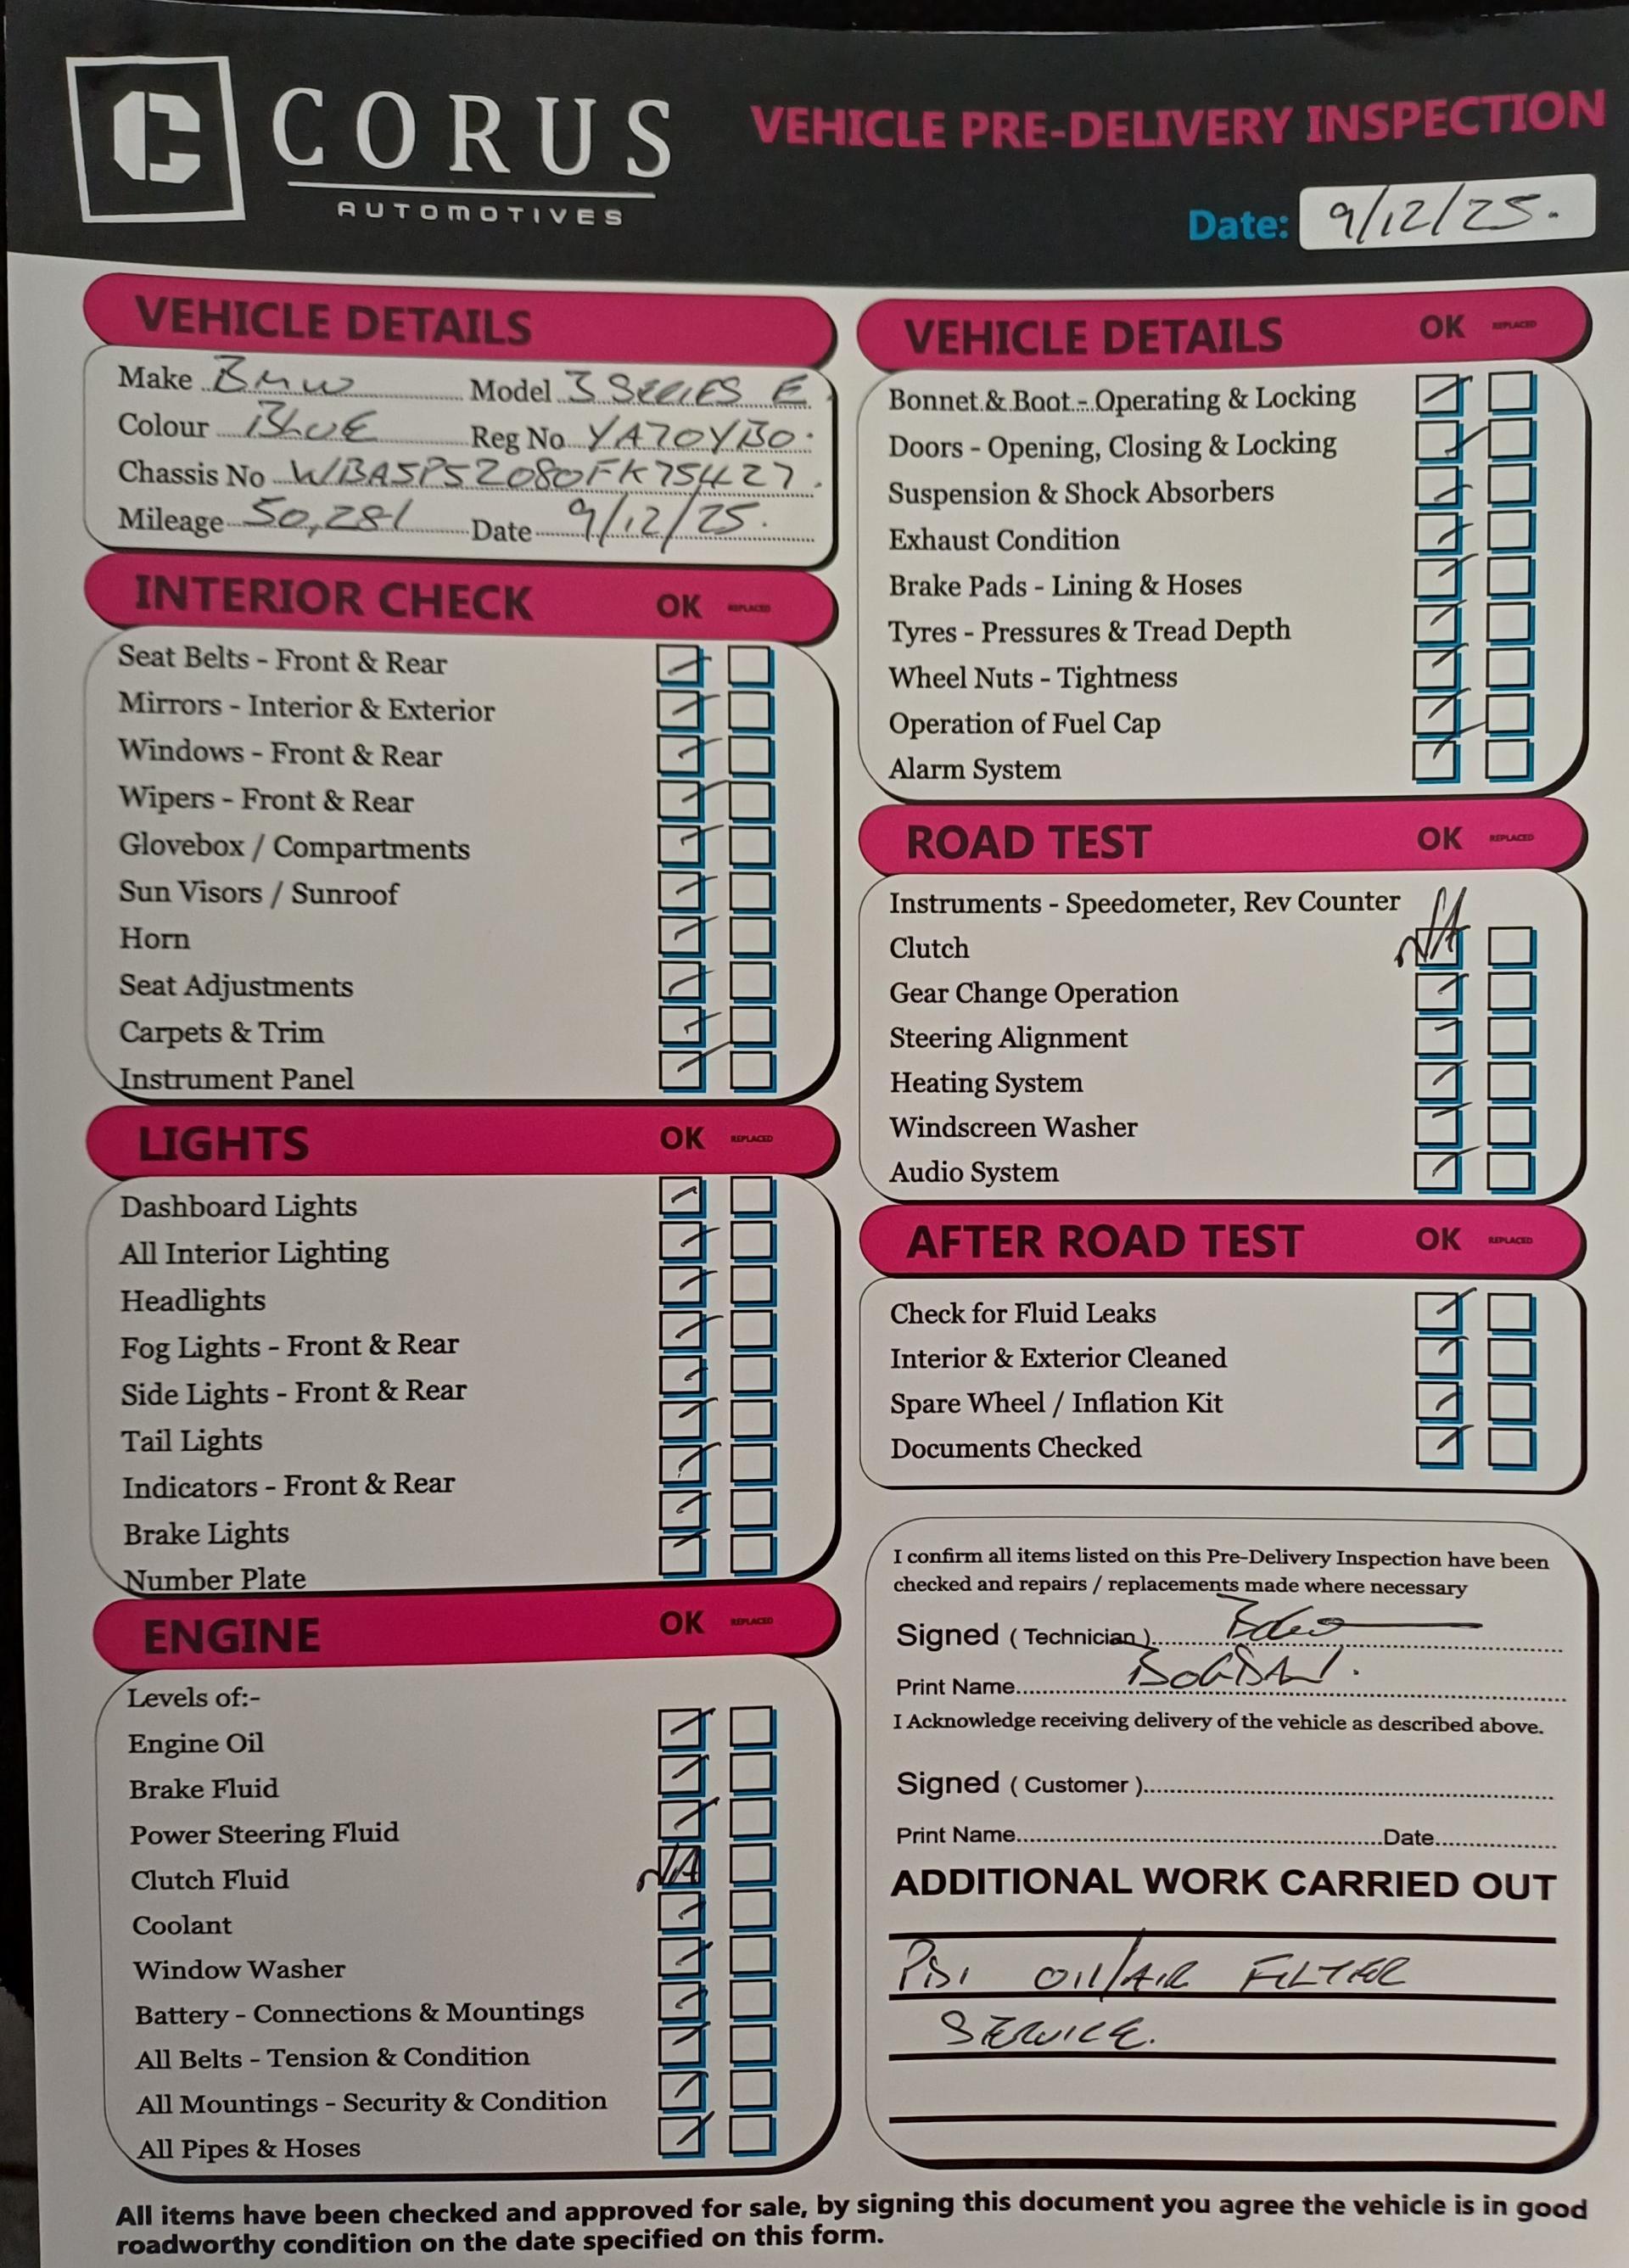 CORUS
AUTOMOTIVES
VEHICLE PRE-DELIVERY INSPECTION
Date: 9/12/25.
VEHICLE DETAILS
Make BMW Model 3 SERIES E
Colour BLUE Reg No YA70YBO.
Chassis No WBA5P52080FK75427.
Mileage 50,281 Date 9/12/25.
INTERIOR CHECK OK REPLACED
Seat Belts - Front & Rear
Mirrors - Interior & Exterior
Windows - Front & Rear
Wipers - Front & Rear
Glovebox / Compartments
Sun Visors / Sunroof
Horn
Seat Adjustments
Carpets & Trim
Instrument Panel
LIGHTS OK REPLACED
Dashboard Lights
All Interior Lighting
Headlights
Fog Lights - Front & Rear
Side Lights - Front & Rear
Tail Lights
Indicators - Front & Rear
Brake Lights
Number Plate
ENGINE OK REPLACED
Levels of:-
Engine Oil
Brake Fluid
Power Steering Fluid
Clutch Fluid N/A
Coolant
Window Washer
Battery - Connections & Mountings
All Belts - Tension & Condition
All Mountings - Security & Condition
All Pipes & Hoses
VEHICLE DETAILS OK REPLACED
Bonnet & Boot - Operating & Locking
Doors - Opening, Closing & Locking
Suspension & Shock Absorbers
Exhaust Condition
Brake Pads - Lining & Hoses
Tyres - Pressures & Tread Depth
Wheel Nuts - Tightness
Operation of Fuel Cap
Alarm System
ROAD TEST OK REPLACED
Instruments - Speedometer, Rev Counter
Clutch N/A
Gear Change Operation
Steering Alignment
Heating System
Windscreen Washer
Audio System
AFTER ROAD TEST OK REPLACED
Check for Fluid Leaks
Interior & Exterior Cleaned
Spare Wheel / Inflation Kit
Documents Checked
I confirm all items listed on this Pre-Delivery Inspection have been
checked and repairs / replacements made where necessary
Signed ( Technician )
Print Name BOGDAN.
I Acknowledge receiving delivery of the vehicle as described above.
Signed ( Customer )
Print Name Date
ADDITIONAL WORK CARRIED OUT
PDI OIL/AIR FILTER
SERVICE.
All items have been checked and approved for sale, by signing this document you agree the vehicle is in good
roadworthy condition on the date specified on this form.